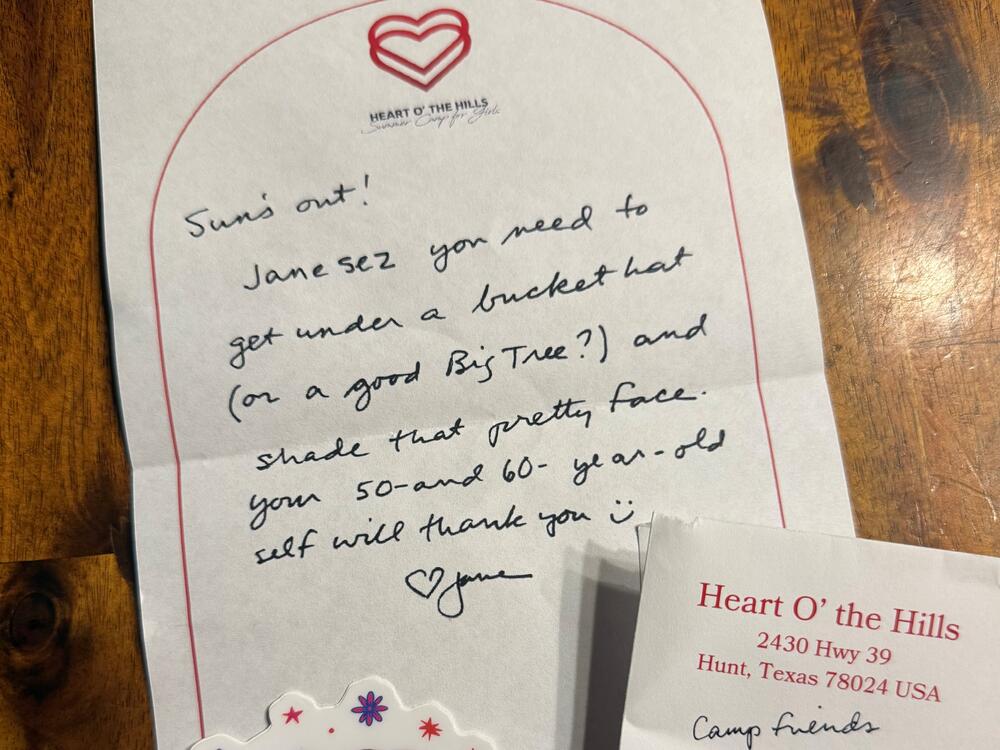 HEART O' THE HILLS
Summer Camp for Girls
Sun's out!
Jane sez you need to
get under a bucket hat
(or a good Big Tree?) and
shade that pretty face.
your 50-and 60- year-old
self will thank you
jane
Heart O' the Hills
2430 Hwy 39
Hunt, Texas 78024 USA
Camp friends